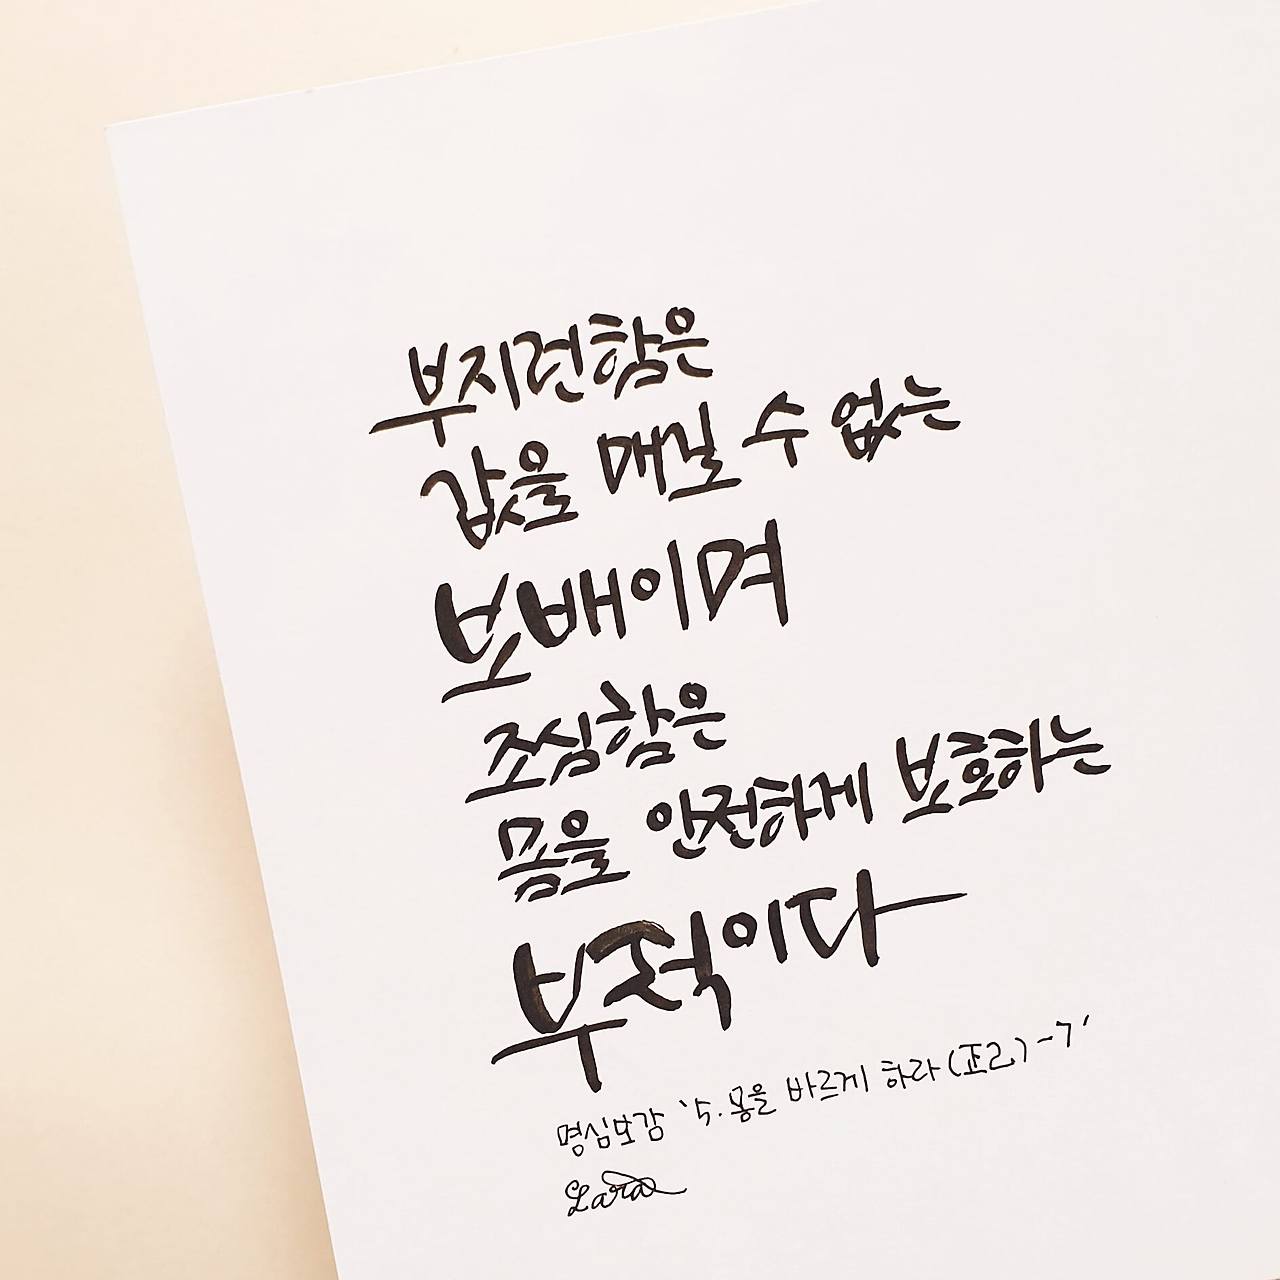 부지런함은
값을 매길 수 없는
보배이며
조심함은
몸을 안전하게 보호하는
부적이다
명심보감 '5. 몸을 바르게 하라(正己)-7'
Lara